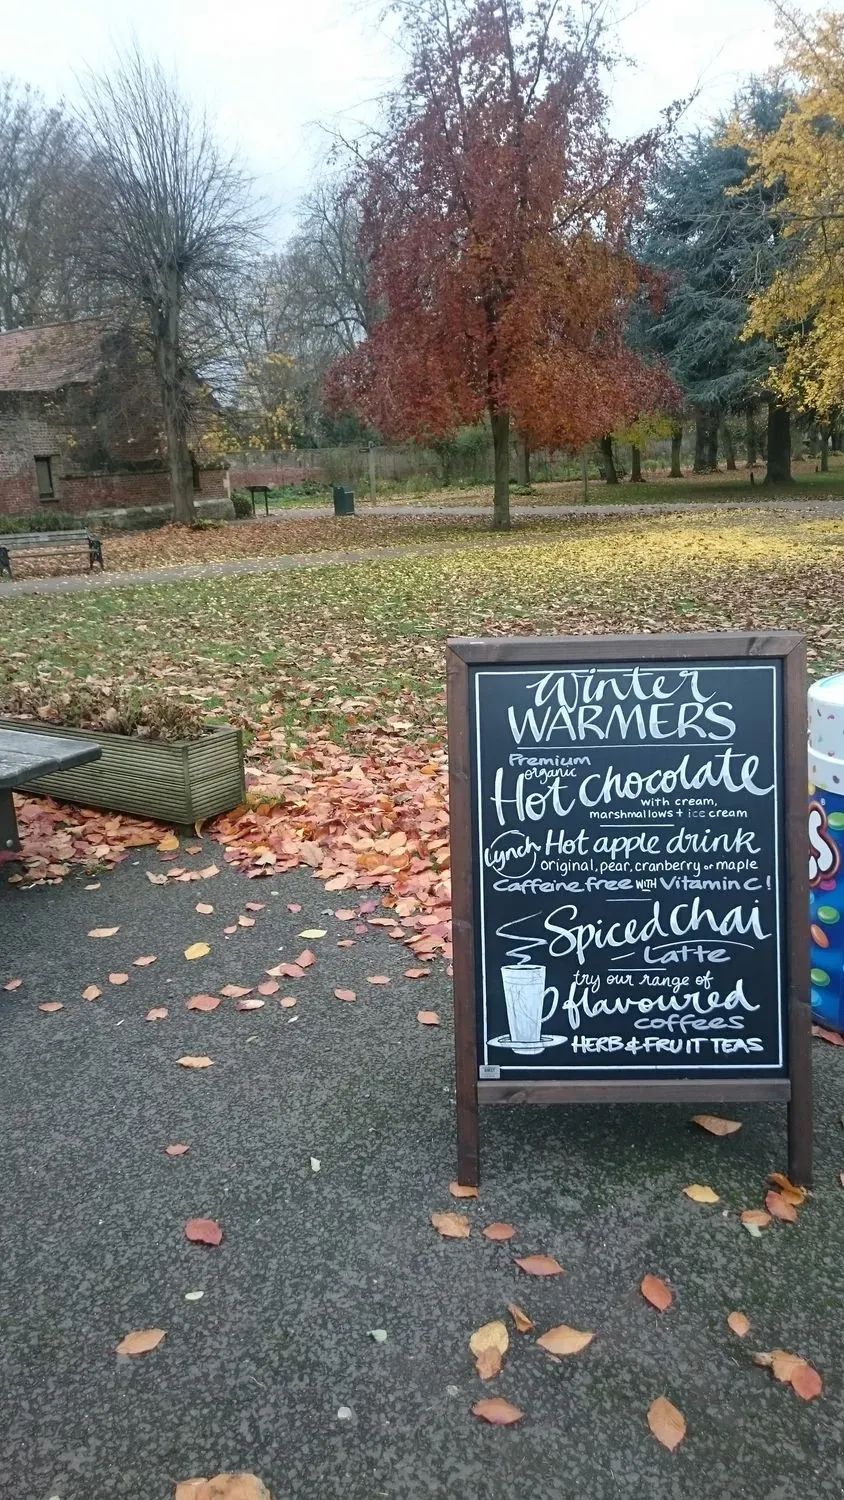 Winter
WARMERS
Premium
organic
Hot Chocolate
with cream,
marshmallows + ice cream
Lynch Hot apple drink
original, pear, cranberry or maple
Caffeine free WITH Vitamin C!
Spiced Chai
Latte
try our range of
flavoured
coffees
HERB & FRUIT TEAS